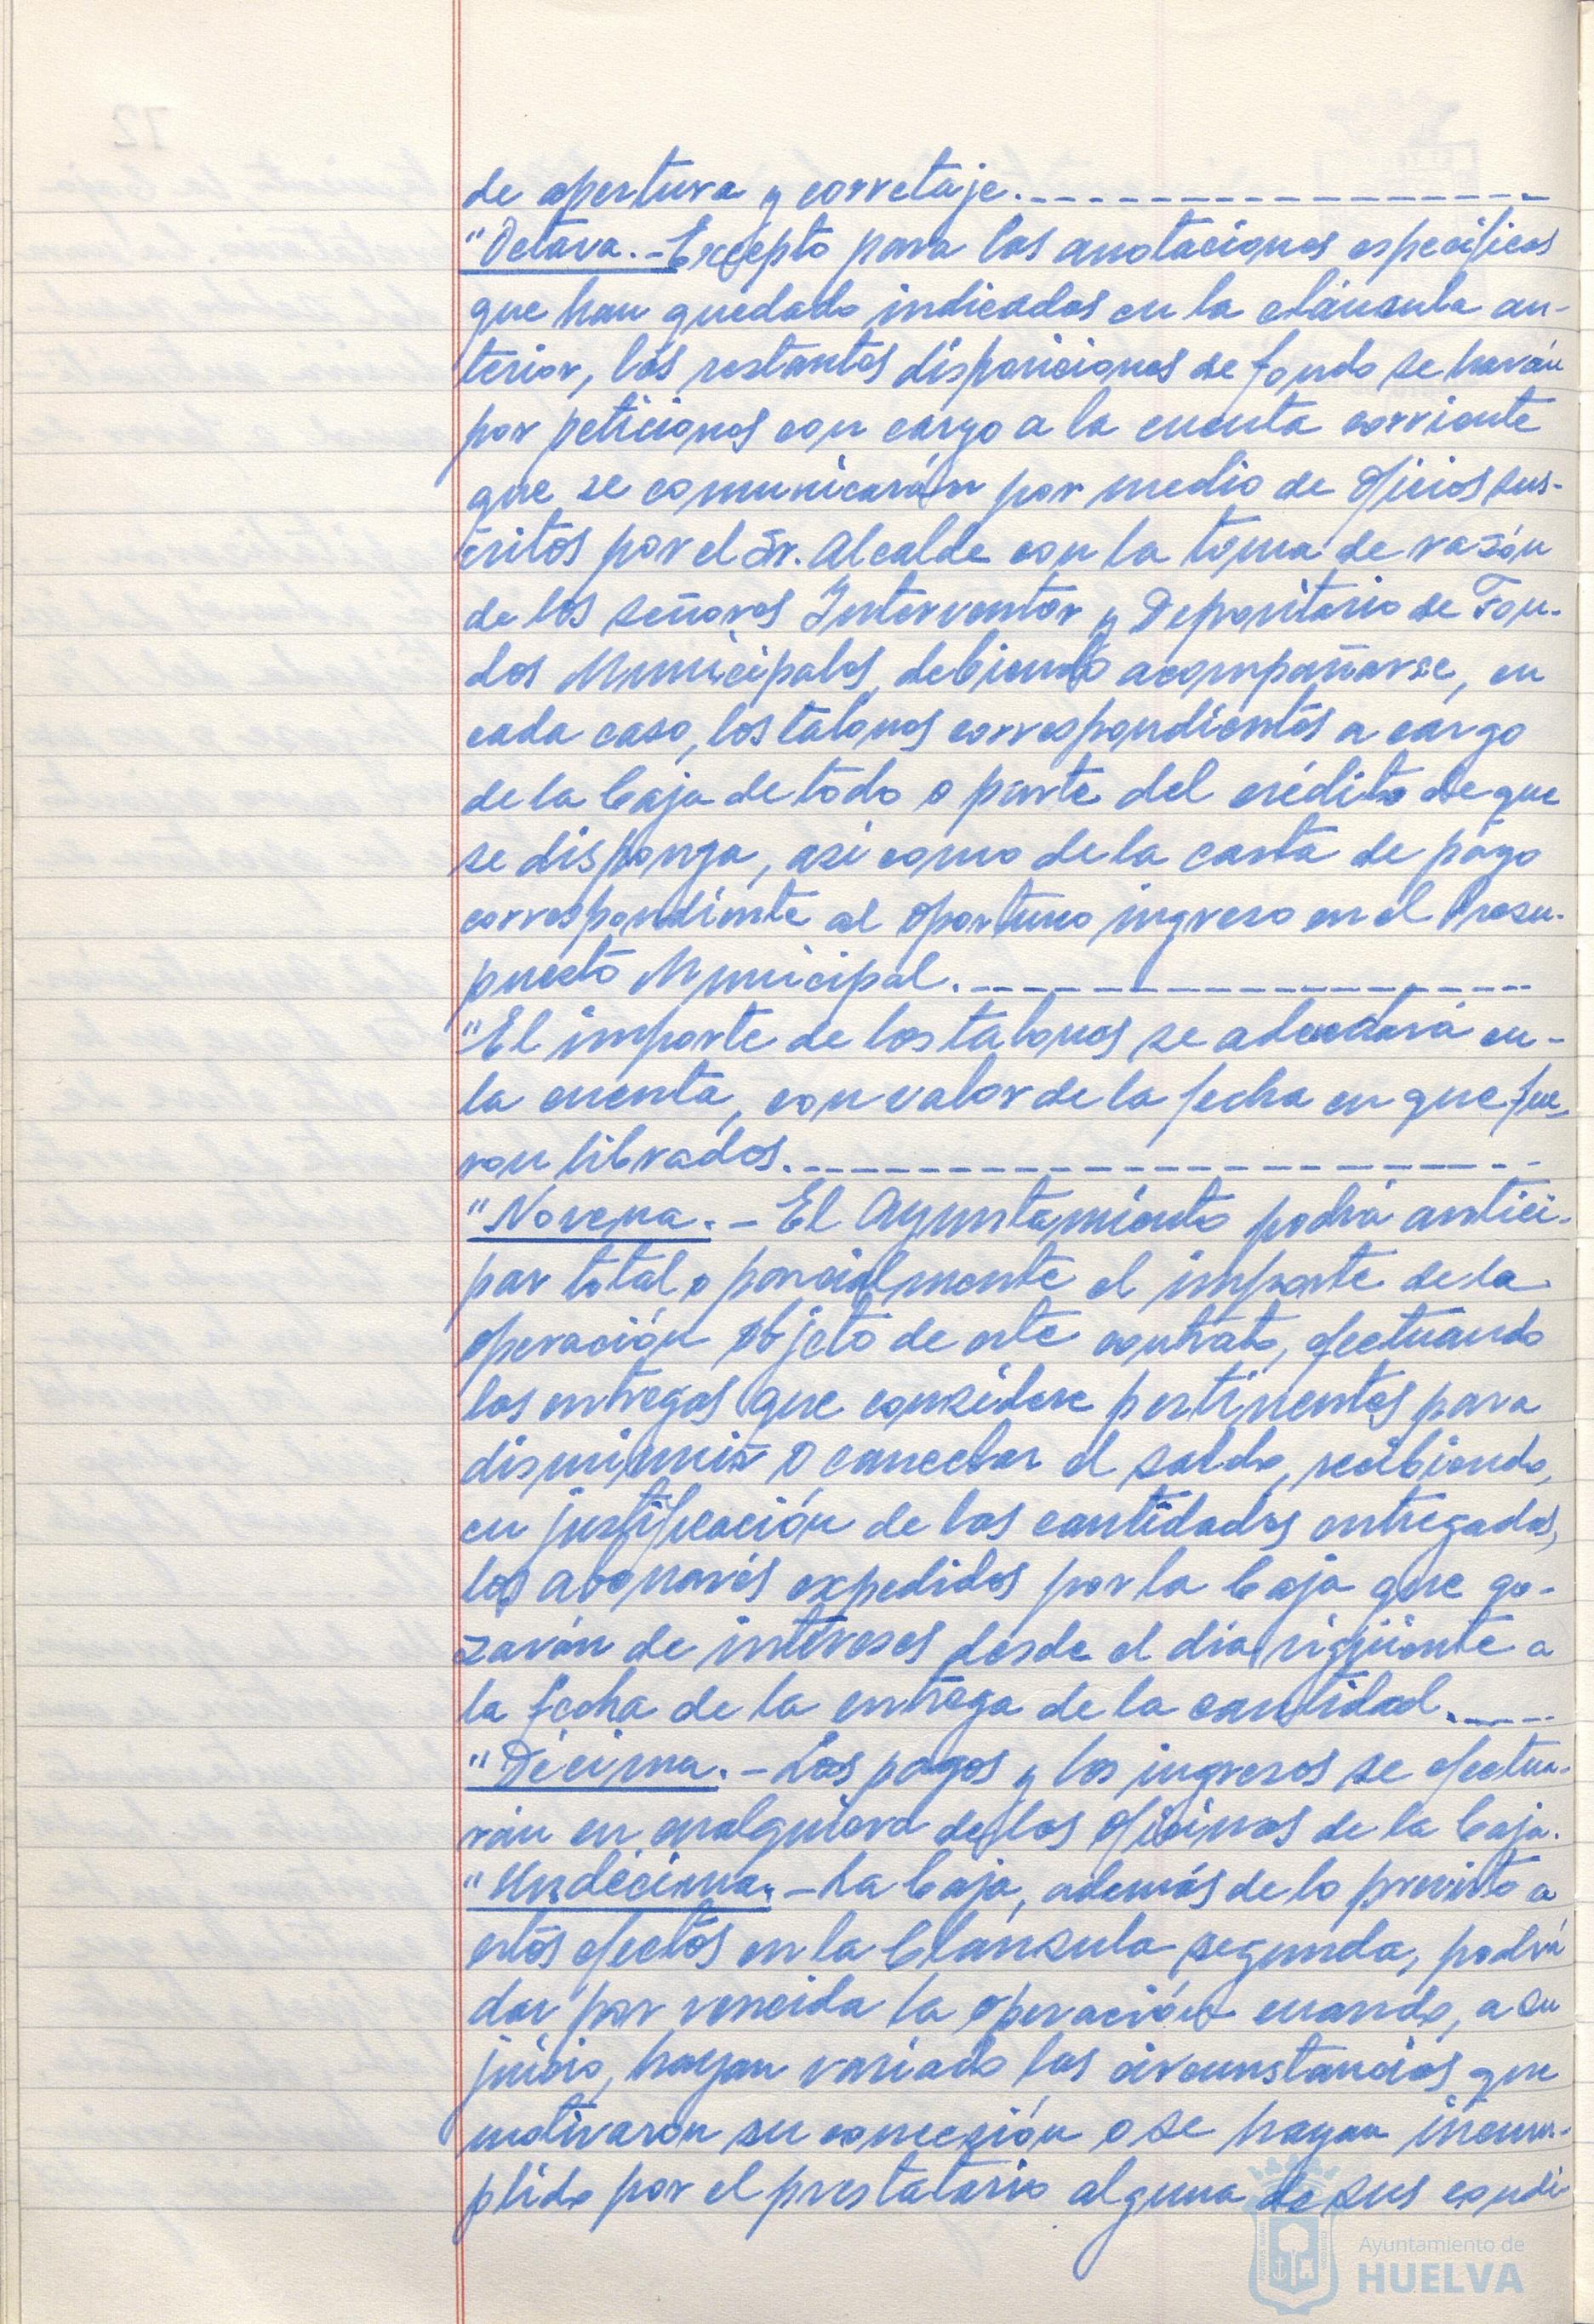 de apertura y corretaje.------------------
"Octava.- Excepto para las anotaciones específicas
que han quedado indicadas en la cláusula an-
terior, las restantes disposiciones de fondo se harán
por peticiones con cargo a la cuenta corriente
que se comunicarán por medio de oficios sus-
critos por el Sr. Alcalde con la toma de razón
de los señores Interventor y Depositario de Fon-
dos Municipales, debiendo acompañarse, en
cada caso, los talones correspondientes a cargo
de la Caja de todo o parte del crédito de que
se disponga, así como de la carta de pago
correspondiente al oportuno ingreso en el Presu-
puesto Municipal.------------------
"El importe de los talones se adeudará en-
la cuenta, con valor de la fecha en que fue-
ron librados.------------------
"Novena.- El Ayuntamiento podrá antici-
par total o parcialmente el importe de la
operación objeto de este contrato, efectuando
las entregas que considere pertinentes para
disminuir o cancelar el saldo, recibiendo,
en justificación de las cantidades entregadas,
los abonarés expedidos por la Caja que go-
zarán de intereses desde el día sigüiente a
la fecha de la entrega de la cantidad.----
"Décima.- Los pagos y los ingresos se efectua-
rán en cualquiera de las oficinas de la Caja.
"Undécima.- La Caja, además de lo previsto a
estos efectos en la Cláusula segunda, podrá
dar por vencida la operación cuando, a su
juicio, hayan variado las circunstancias que
motivaron su concesión o se hayan incum-
plido por el prestatario alguna de sus condi-
Ayuntamiento de
HUELVA